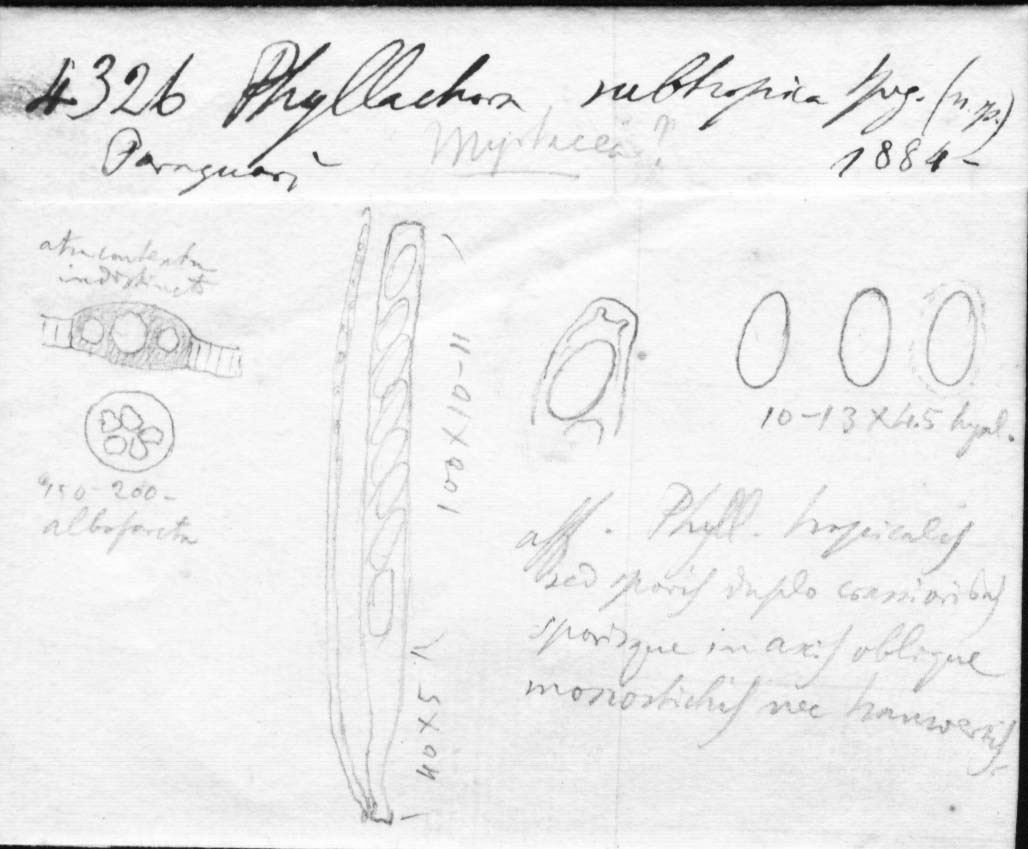 4326 Phyllachora subtropica Speg. (n. sp.)
Myrtacea?
Paraguari 1884-
atro contextu
indistincto
150-200-
albofarcta
100 X 10-11
40 X 5
10-13 X 4.5 hyal.
aff. Phyll. tropicalis
sed sporis duplo crassioribus
sporisque in ascis oblique
monostichis nec transversis